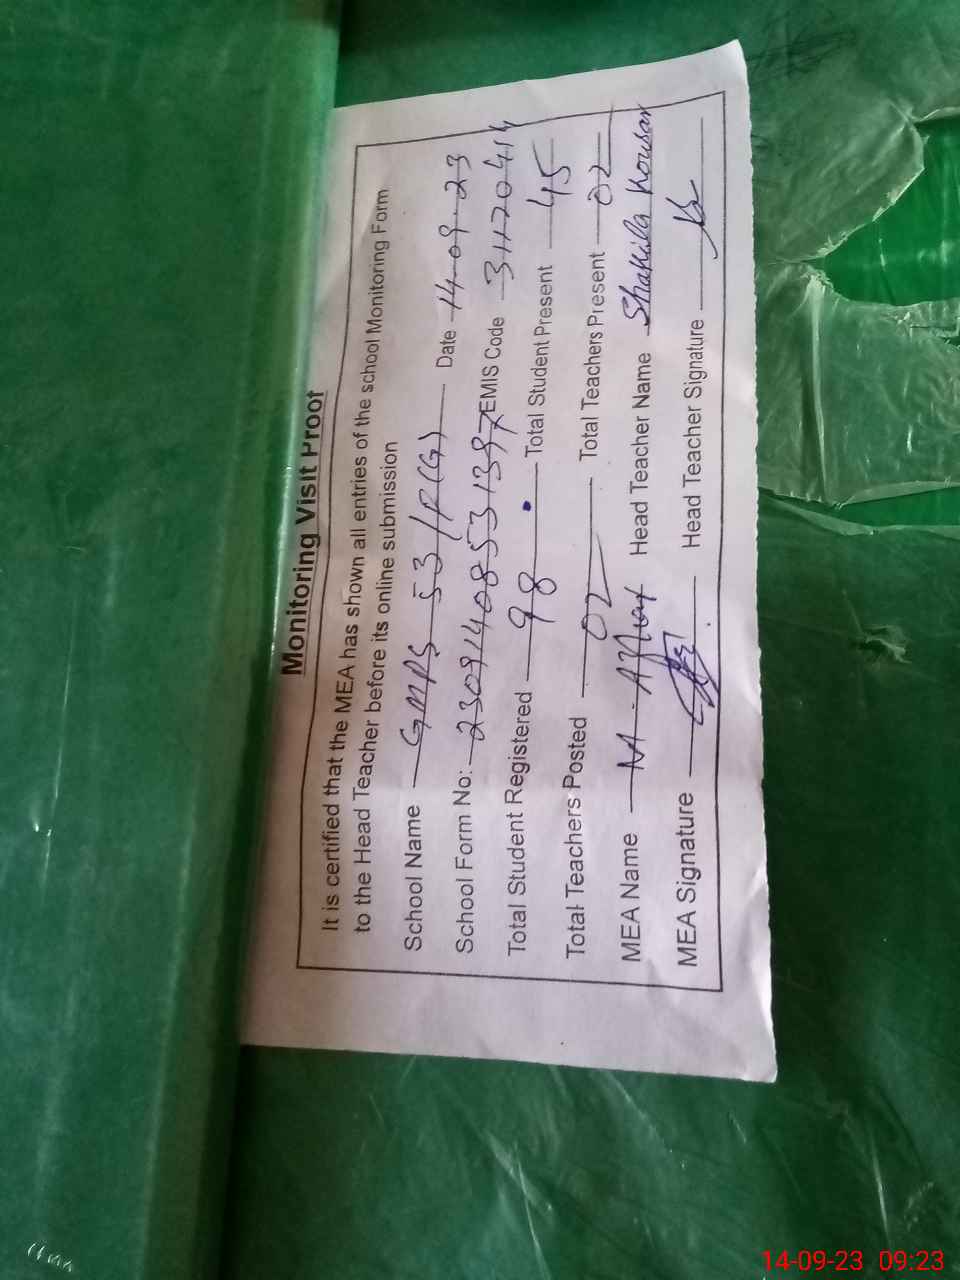 Monitoring Visit Proof
It is certified that the MEA has shown all entries of the school Monitoring Form
to the Head Teacher before its online submission
School Name GMPS 53/P(G) Date 14-09-23
School Form No: 23091408531397 EMIS Code 31120414
Total Student Registered 98 Total Student Present 45
Total Teachers Posted 02 Total Teachers Present 02
MEA Name M. Head Teacher Name Shakila Kousar
MEA Signature Head Teacher Signature
14-09-23 09:23